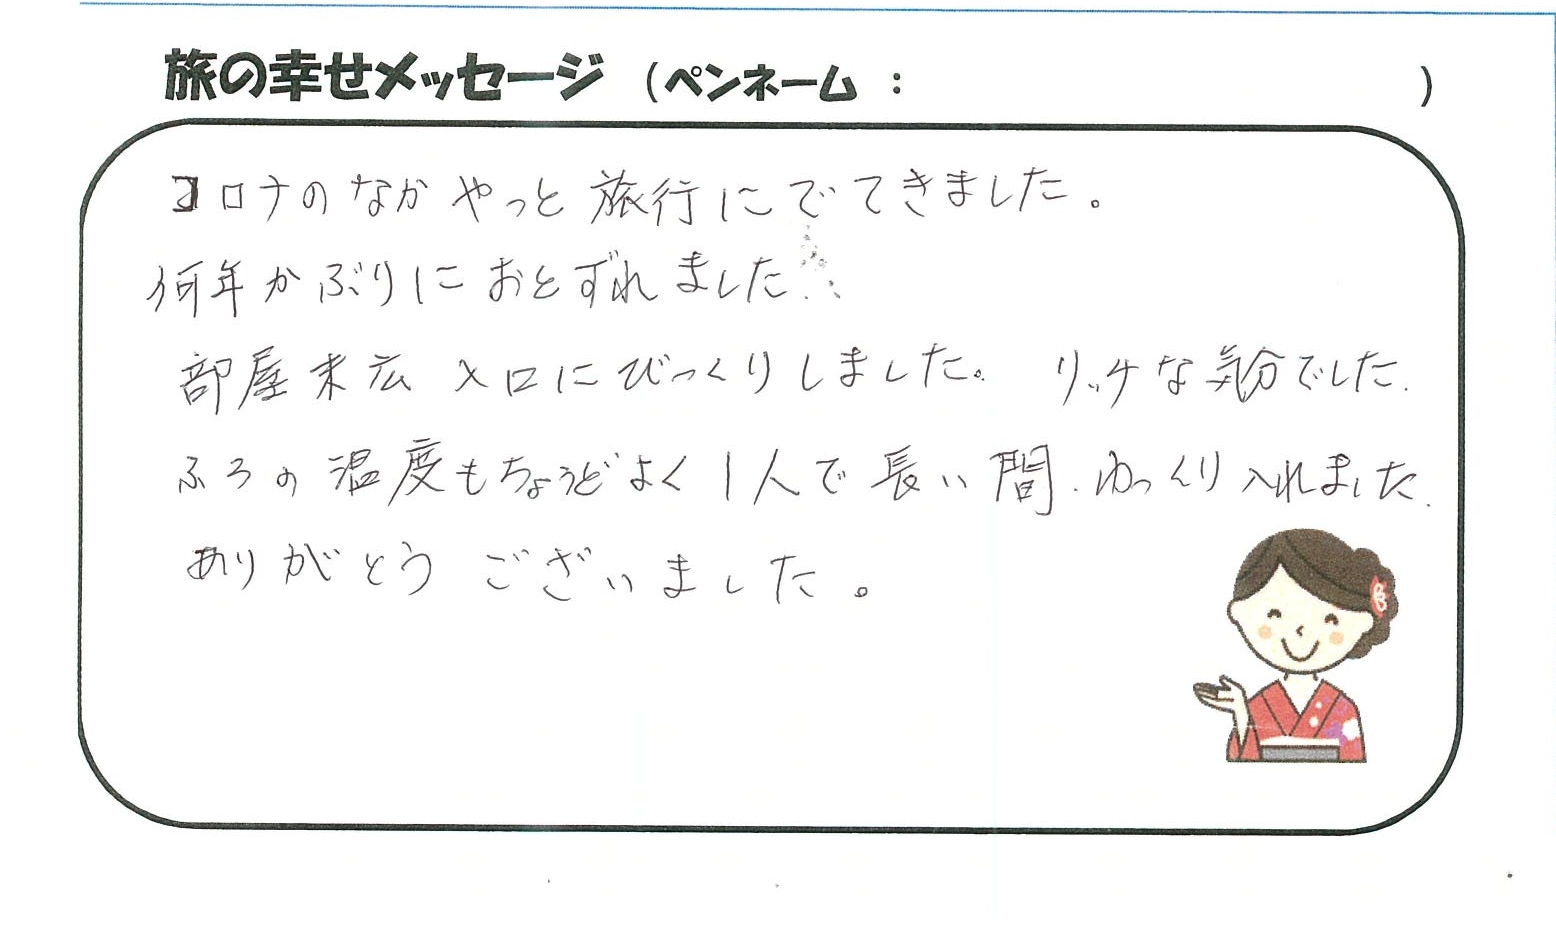 旅の幸せメッセージ (ペンネーム : )
コロナのなか やっと 旅行にでてきました。
何年かぶりに おとずれました.
部屋末広 入口にびっくりしました。 リッチな気分でした.
ふろの温度もちょうどよく1人で長い間.ゆっくり入れました.
ありがとう ございました。